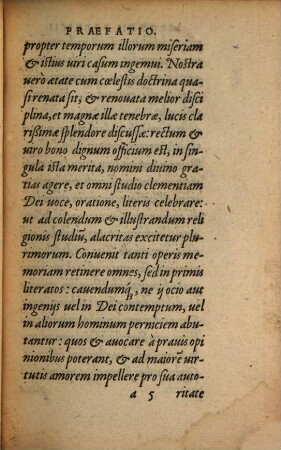 PRAEFATIO.
propter temporum illorum miseriam
& istius uiri casum ingemui. Nostra
uero ætate cum cœlestis doctrina qua-
si renata sit, & renouata melior disci
plina, et magnæ illæ tenebræ, lucis cla
rißimæ splendore discussæ: rectum &
uiro bono dignum officium est, in sin-
gula ista merita, nomini diuino gra-
tias agere, et omni studio clementiam
Dei uoce, oratione, literis celebrare:
ut ad colendum & illustrandum reli
gionis studiũ, alacritas excitetur plu-
rimorum. Conuenit tanti operis me-
moriam retinere omnes, sed in primis
literatos: cauendumq́, ne ij ocio aut
ingenijs uel in Dei contemptum, uel
in aliorum hominum perniciem abu-
tantur: quos & auocare à prauis opi
nionibus poterant, & ad maiorẽ uir-
tutis amorem impellere pro sua auto-
a 5 ritate